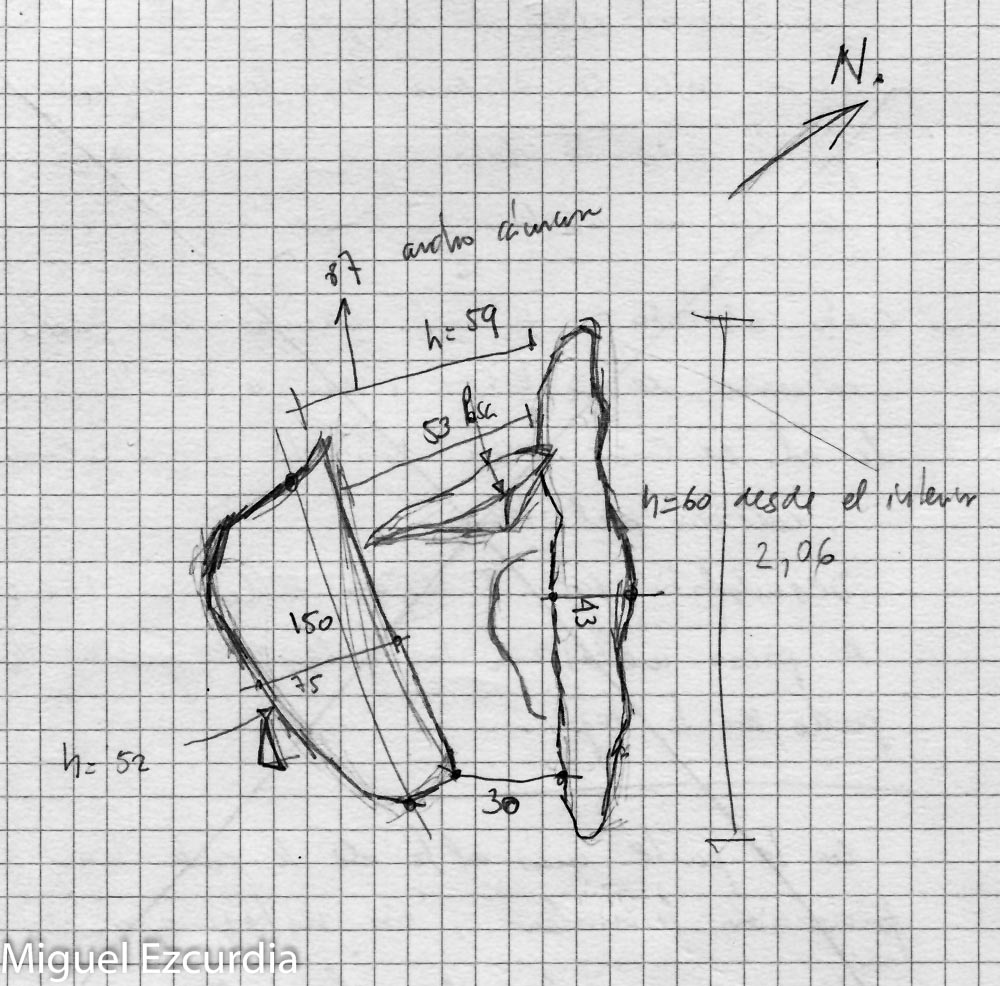 N.
ancho cámara
87
h= 59
53
Losa
h=60 desde el interior
2,06
43
150
75
h= 52
30
Miguel Ezcurdia